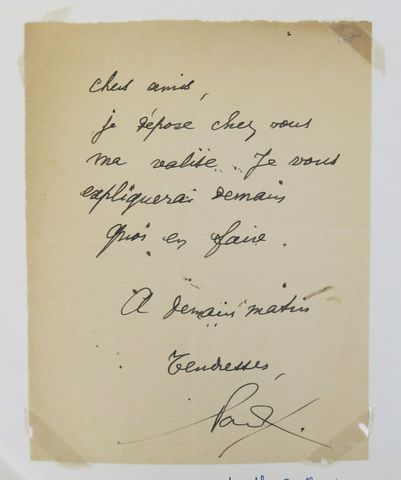 chers amis,
je dépose chez vous
ma valise. Je vous
expliquerai demain
quoi en faire.
A demain matin
Tendresses,